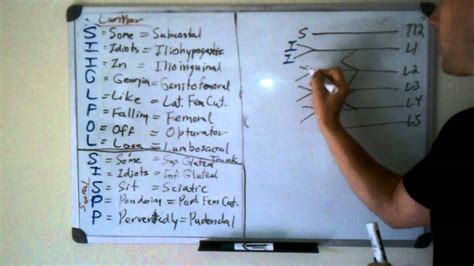 Lumbar
S = Some = Subcostal
I = Idiots = Iliohypogastric
I = In = Ilioinguinal
G = Georgia = Genitofemoral
L = Like = Lat. Fem Cut.
= Falling = Femoral
O = Off = Opturator
L = = Lumbosacral
Trunk
Sacral
S = Some = Sup Gluteal
I = Idiots = Inf Gluteal
S = Sit = Sciatic
P = Pondering = Post Fem Cut.
P = = Pudendal
S T12
I L1
I
L2
L3
L4
L5